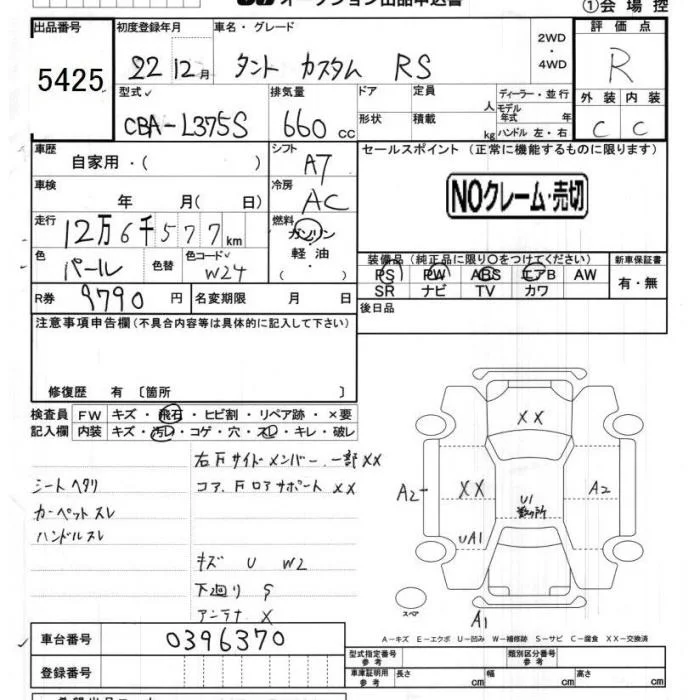 オークション出品申込書
①会場控
出品番号 初度登録年月 車名・グレード 2WD・4WD 評価点
5425 22 12月 タント カスタム RS R
型式 排気量 ドア 定員 人 ディーラー・並行 外装 内装
CBA-L375S 660 cc 形状 積載 kg モデル年式 年 ハンドル 左・右 C C
車歴 自家用・( ) シフト A7 セールスポイント (正常に機能するものに限ります)
車検 年 月( 日) 冷房 AC NOクレーム・売切
走行 12万6千577km 燃料 ガソリン
色 パール 色替 色コード W24 軽油 ( ・ ) 装備品 (純正品に限り○をつけてください) 新車保証書
PS PW ABS エアB AW 有・無
SR ナビ TV カワ
R券 9790円 名変期限 月 日 後日品
注意事項申告欄(不具合内容等は具体的に記入して下さい)
修復歴 有 〔箇所 〕
検査員 FW キズ・飛石・ヒビ割・リペア跡・×要
記入欄 内装 キズ・汚レ・コゲ・穴・スレ・キレ・破レ
右Fサイドメンバー 一部XX
シートヘタリ コア、Fロアサポート XX
カーペットスレ
ハンドルスレ
キズ U W2
下廻り S
アンテナ X
XX
A2 XX U1 A2
UA1
スペア
A1
A-キズ E-エクボ U-凹み W-補修跡 S-サビ C-腐食 XX-交換済
車台番号 0396370 型式指定番号 参考 類別区分番号 参考
登録番号 車庫証明用 参考 長さ cm 幅 cm 高さ cm